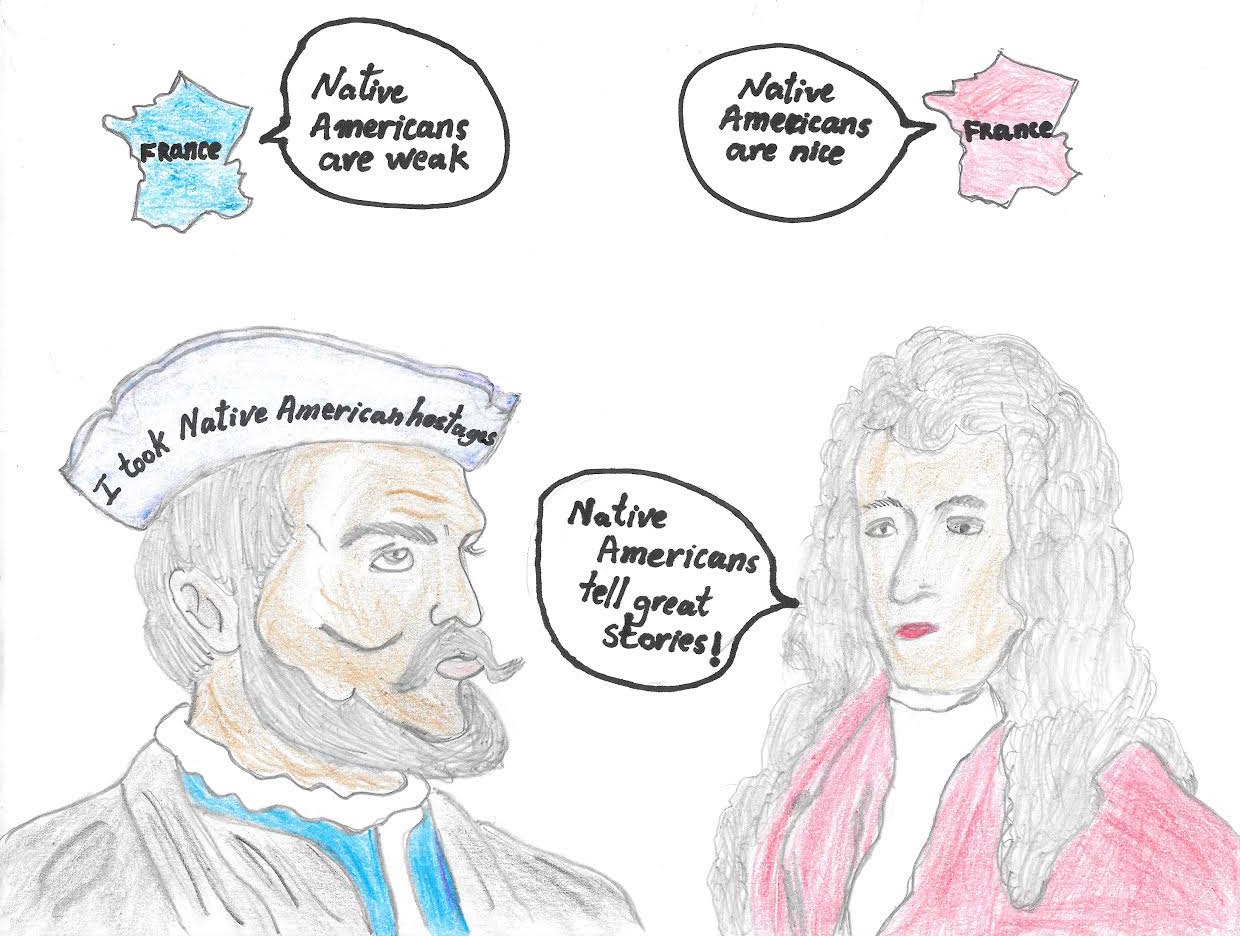 FRANCE
Native
Americans
are weak
Native
Americans
are nice
FRANCE
I took Native American hostages
Native
Americans
tell great
stories!